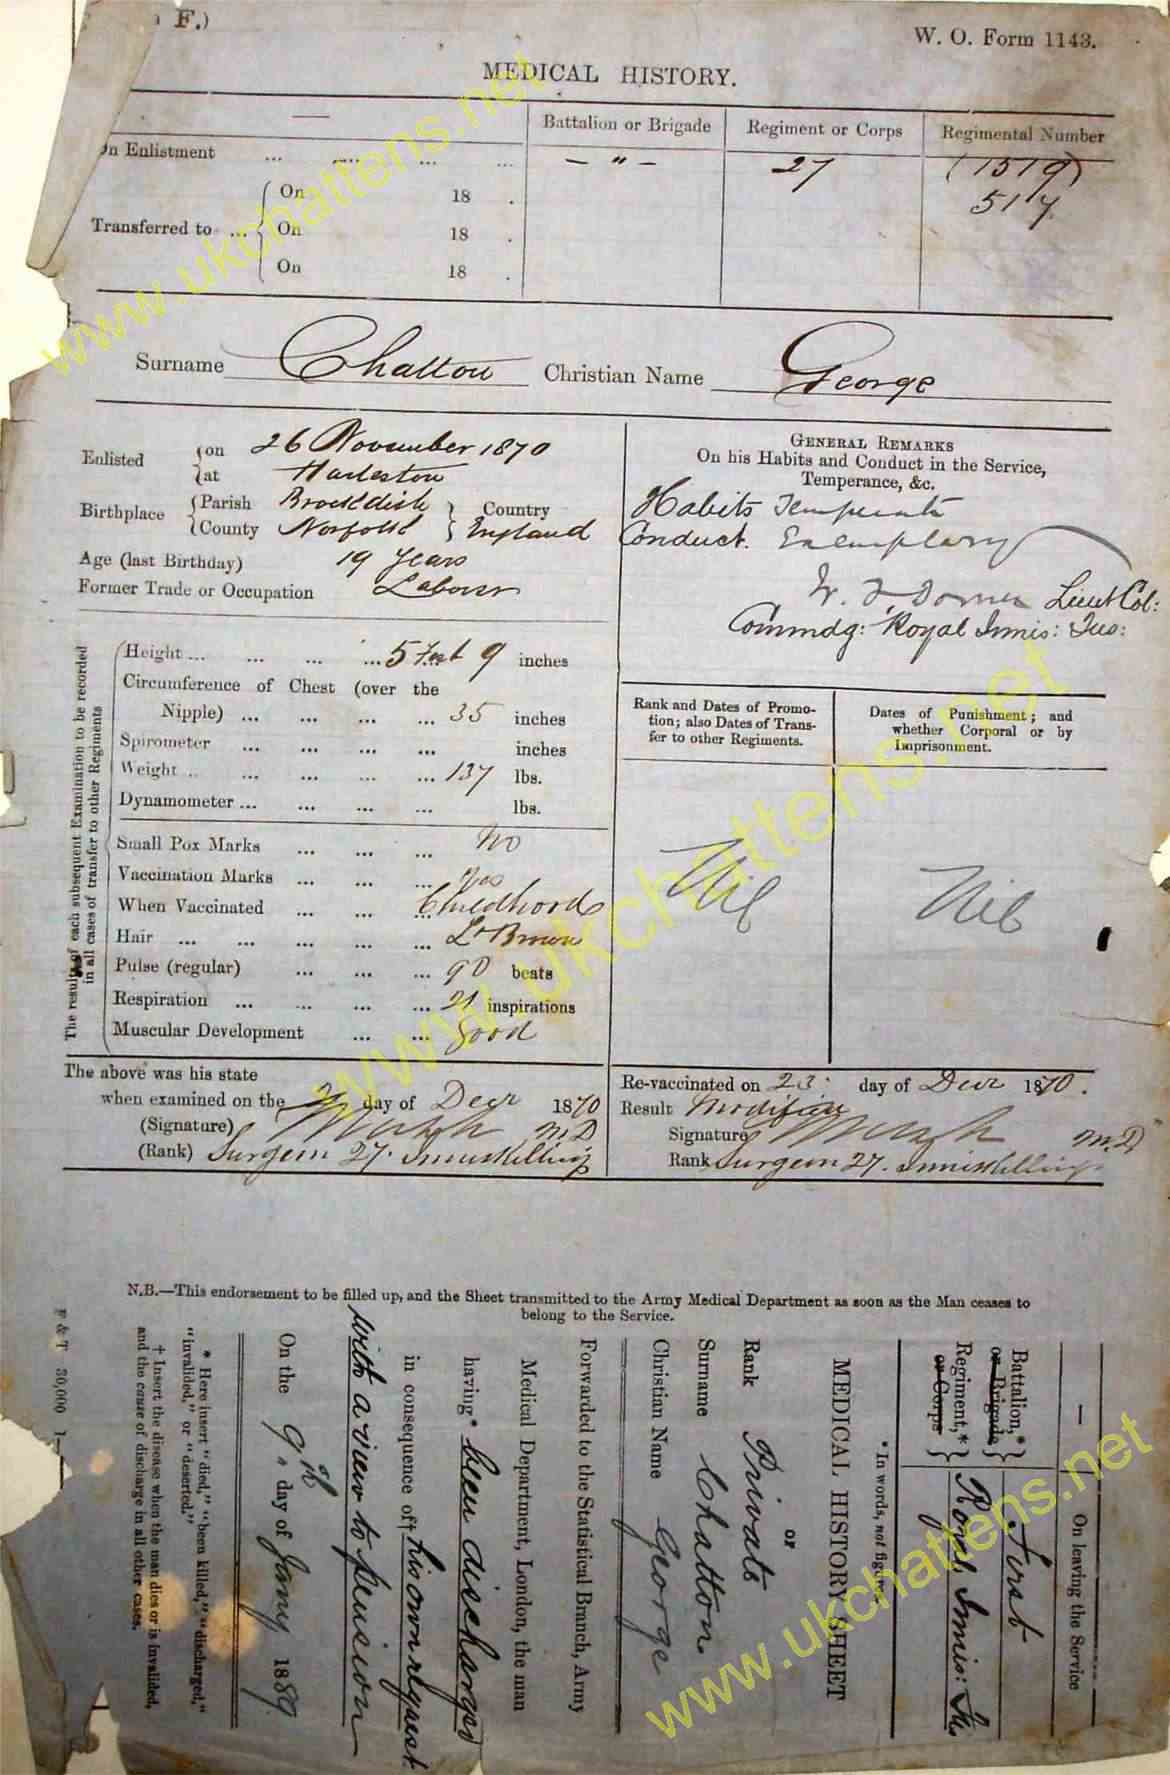 F.)
W. O. Form 1143.
MEDICAL HISTORY.
— Battalion or Brigade Regiment or Corps Regimental Number
On Enlistment ... ... ... ... — " — 27 (1519)
517
Transferred to ... On 18 .
On 18 .
On 18 .
Surname Chatton Christian Name George
Enlisted on 26 November 1870
at Harleston
Birthplace Parish Brockdish Country
County Norfolk England
Age (last Birthday) 19 Years
Former Trade or Occupation Labourer
GENERAL REMARKS
On his Habits and Conduct in the Service,
Temperance, &c.
Habits Temperate
Conduct. Exemplary
Lieut Col:
Commdg: Royal Innis: Fus:
The results of each subsequent Examination to be recorded
in all cases of transfer to other Regiments
Height ... ... ... ... 5 Feet 9 inches
Circumference of Chest (over the
Nipple) ... ... ... ... 35 inches
Spirometer ... ... ... inches
Weight ... ... ... ... 137 lbs.
Dynamometer ... ... ... lbs.
Small Pox Marks ... ... ... No
Vaccination Marks ... ... ... yes
When Vaccinated ... ... ... Childhood
Hair ... ... ... ... ... Lt Brown
Pulse (regular) ... ... ... 90 beats
Respiration ... ... ... ... 21 inspirations
Muscular Development ... ... good
Rank and Dates of Promo-
tion; also Dates of Trans-
fer to other Regiments.
Nil
Dates of Punishment; and
whether Corporal or by
Imprisonment.
Nil
The above was his state
when examined on the 2 day of Decr 1870
(Signature) M.D
(Rank) Surgeon 27. Inniskilling
Re-vaccinated on 23. day of Decr 1870.
Result Modified
Signature M.D
Rank Surgeon 27. Inniskilling
N.B.—This endorsement to be filled up, and the Sheet transmitted to the Army Medical Department as soon as the Man ceases to
belong to the Service.
— On leaving the Service
Battalion,*
or Brigade First
Regiment,*
or Corps Royal Innis: Fu.
*In words, not figures.
MEDICAL HISTORY SHEET
or
Rank Private
Surname Chatton
Christian Name George
Forwarded to the Statistical Branch, Army
Medical Department, London, the man
having* been discharged
in consequence of† his own request
with a view to pension
On the 9th day of Jany 1889
* Here insert "died," "been killed," "discharged,"
"invalided," or "deserted."
† Insert the disease when the man dies or is invalided,
and the cause of discharge in all other cases.
F & T 30,000 1—
www.ukchattens.net
www.ukchattens.net
www.ukchattens.net